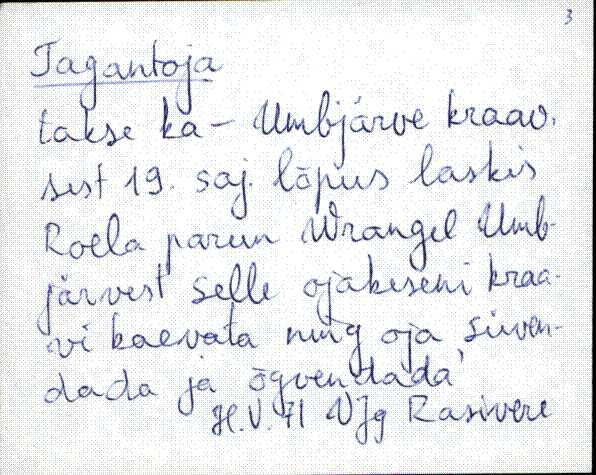 3
Tagantoja
takse ka – Umbjärve kraav,
sest 19. saj. lõpus laskis
Roela parun Wrangel Umb-
järvest selle ojakeseni kraa-
vi kaevata ning oja süven-
dada ja õgvendada
H.V. 71 VJg Rasivere